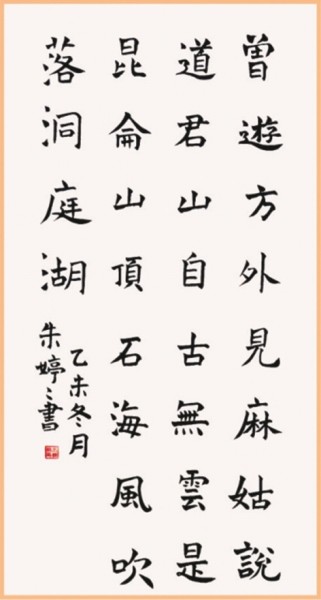 曾遊方外見麻姑說
道君山自古無雲是
昆侖山頂石海風吹
落洞庭湖
乙未冬月
朱婷〻書